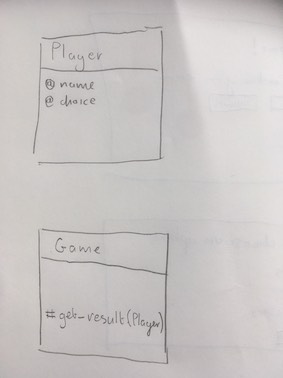 Player
@ name
@ choice
Game
# get_result(Player)